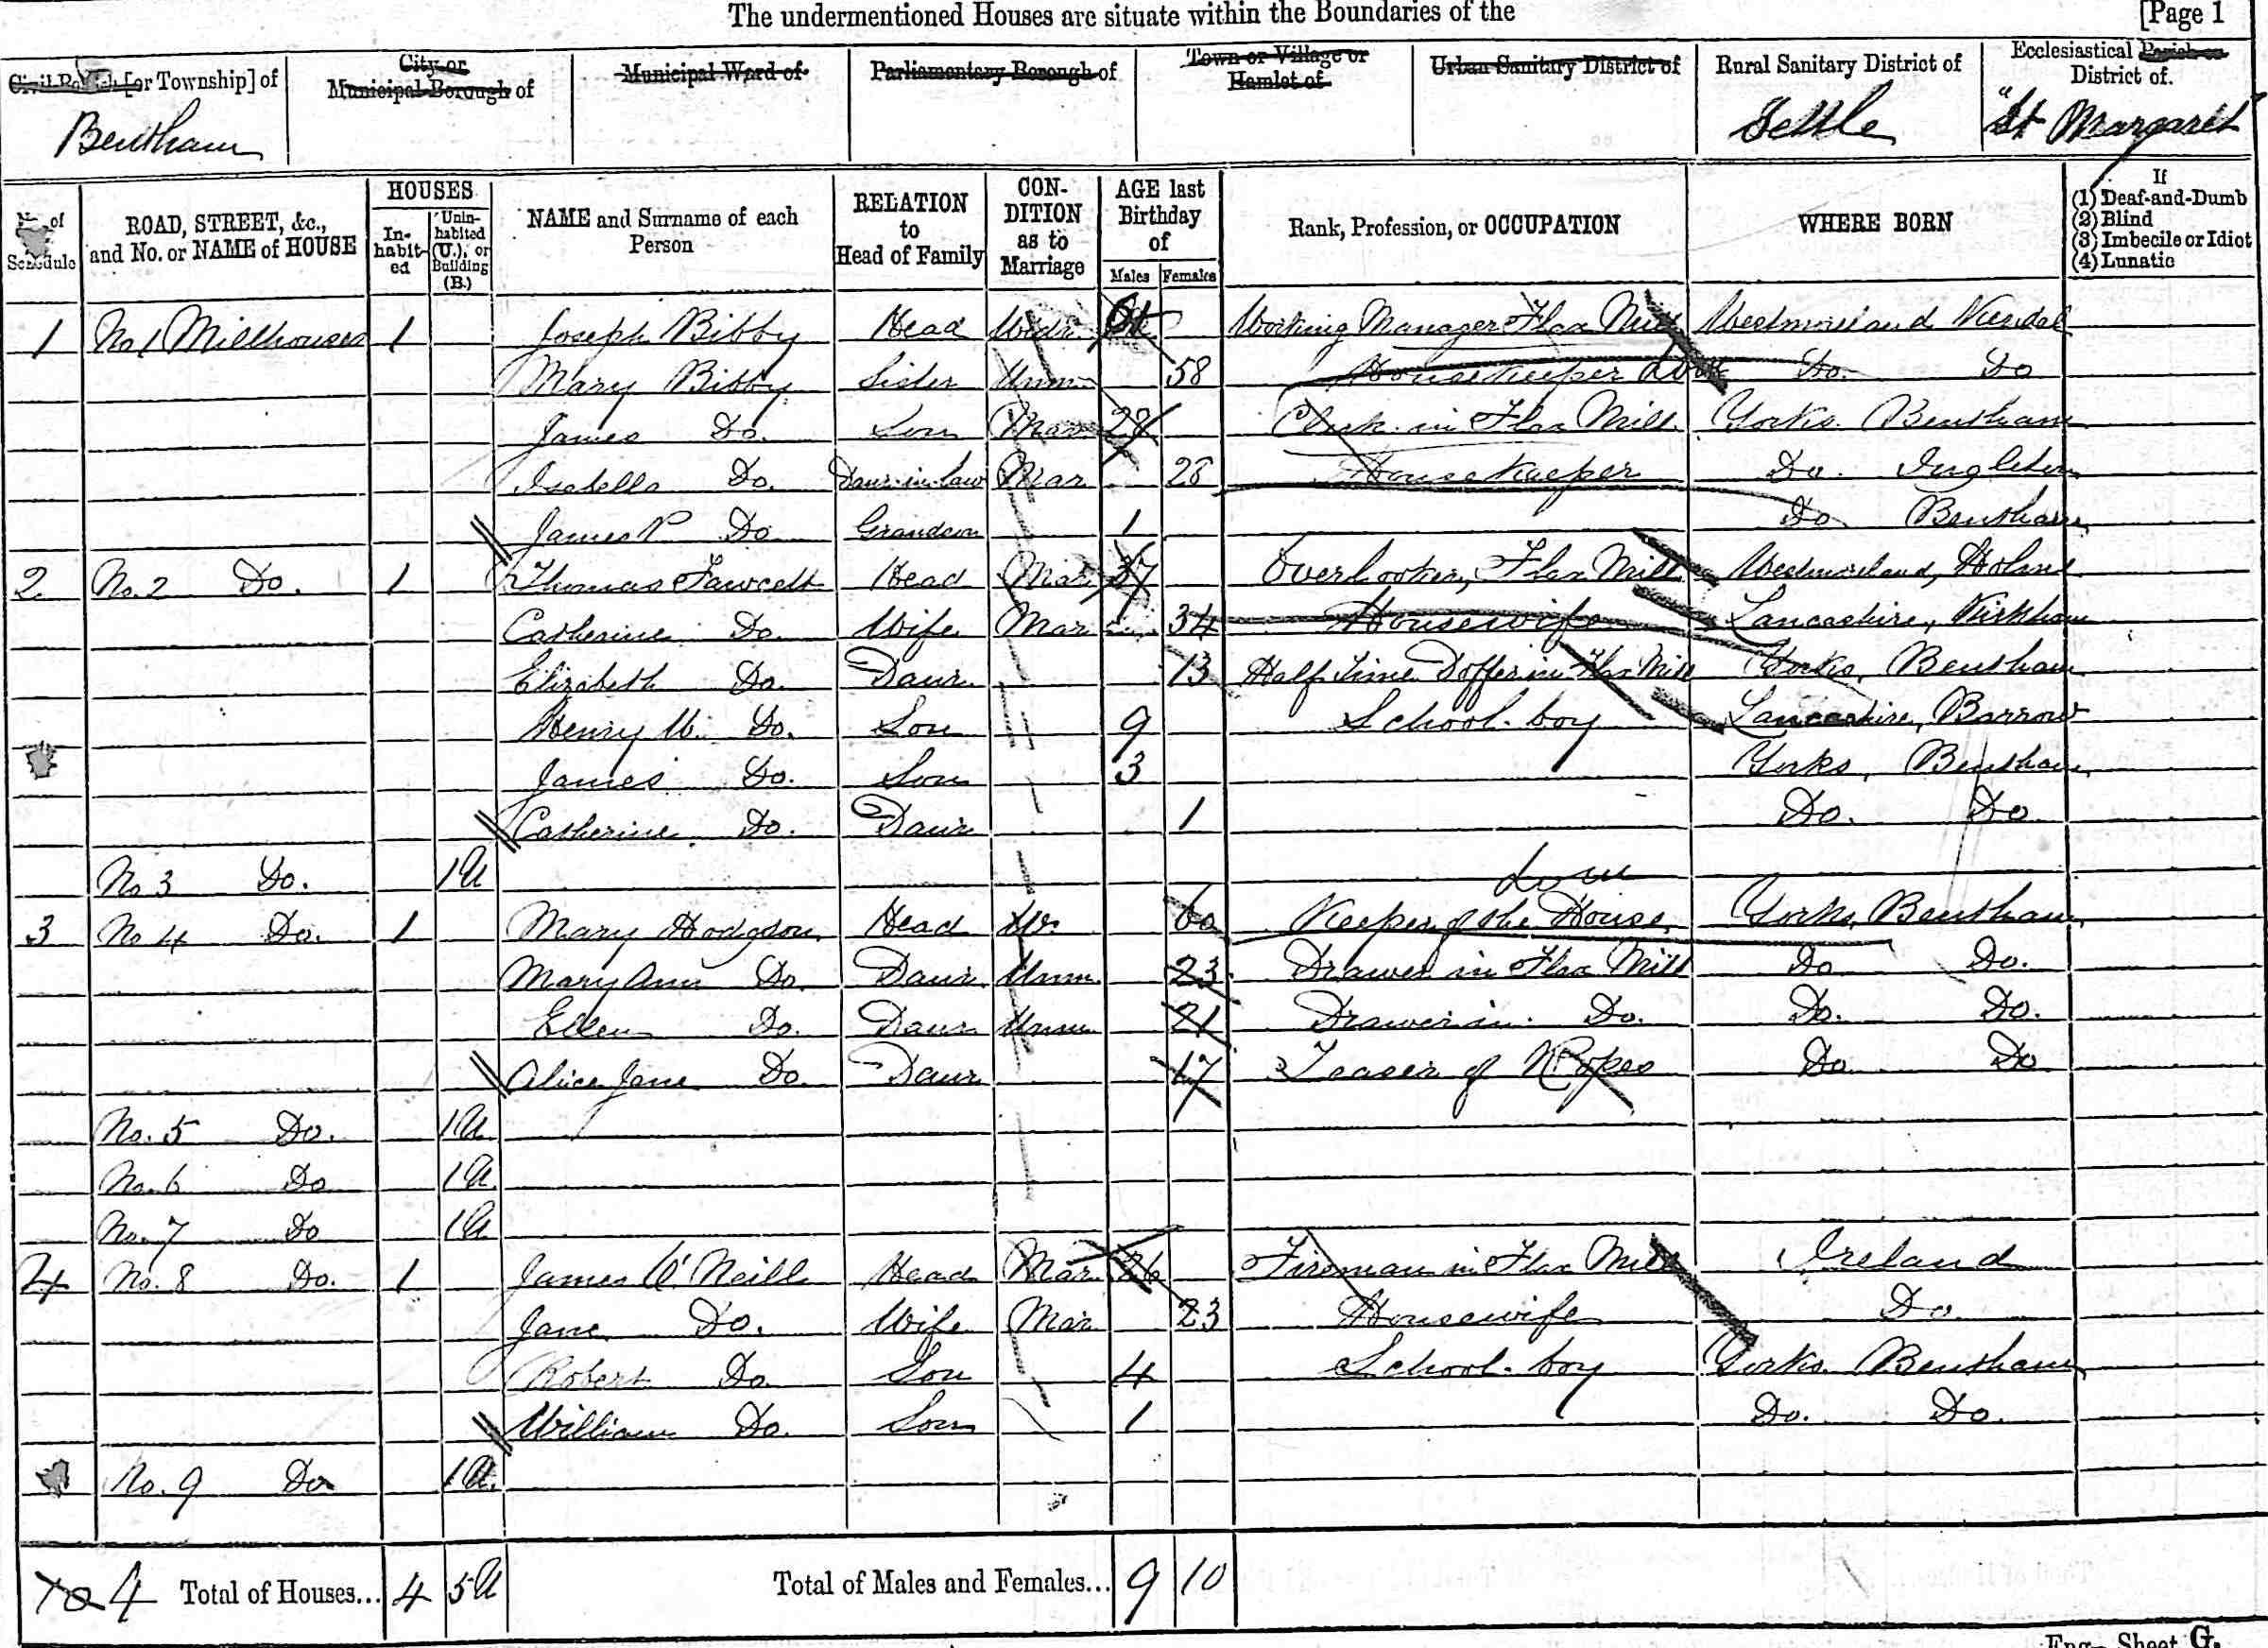 The undermentioned Houses are situate within the Boundaries of the [Page 1
Civil Parish [or Township] of City or Municipal Borough of Municipal Ward of Parliamentary Borough of Town or Village or Hamlet of Urban Sanitary District of Rural Sanitary District of Ecclesiastical Parish or District of
Bentham Settle St Margaret
No. of Schedule ROAD, STREET, &c., and No. or NAME of HOUSE HOUSES Inhabited Uninhabited (U.), or Building (B.) NAME and Surname of each Person RELATION to Head of Family CONDITION as to Marriage AGE last Birthday of Males Females Rank, Profession, or OCCUPATION WHERE BORN If (1) Deaf-and-Dumb (2) Blind (3) Imbecile or Idiot (4) Lunatic
1 No 1 Millhouses 1 Joseph Bibby Head Widr Working Manager Flax Mill Westmoreland Kendal
Mary Bibby Sister Unm 58 Housekeeper Do. Do
James Do. Son Mar 28 Clerk in Flax Mill Yorks. Bentham
Isabella Do. Daur-in-law Mar 28 Housekeeper Do. Ingleton
James P Do Grandson 1 Do Bentham
2 No. 2 Do. 1 Thomas Fawcett Head Mar 37 Overlooker, Flax Mill Westmoreland, Holme
Catherine Do. Wife Mar 34 Housewife Lancashire, Kirkham
Elizabeth Do. Daur 13 Half Time Doffer in Flax Mill Yorks, Bentham
Henry W. Do. Son 9 School-boy Lancashire, Barrow
James Do. Son 3 Yorks, Bentham
Catherine Do. Daur 1 Do. Do
No 3 Do. 1 U
3 No 4 Do. 1 Mary Hodgson Head W. 60 Keeper of the House Yorks, Bentham
Mary Ann Do. Daur Unm 23 Drawer in Flax Mill Do Do.
Ellen Do. Daur Unm 21 Drawer in Do. Do. Do.
Alice Jane Do. Daur 17 Teaser of Ropes Do Do
No. 5 Do. 1 U
No. 6 Do 1 U
No. 7 Do 1 U
4 No. 8 Do. 1 James O'Neill Head Mar 26 Fireman in Flax Mill Ireland
Jane Do. Wife Mar 23 Housewife Do.
Robert Do. Son 4 School-boy Yorks. Bentham
William Do. Son 1 Do. Do.
No. 9 Do 1 U.
4 Total of Houses... 4 5 U Total of Males and Females... 9 10
Eng.- Sheet G.